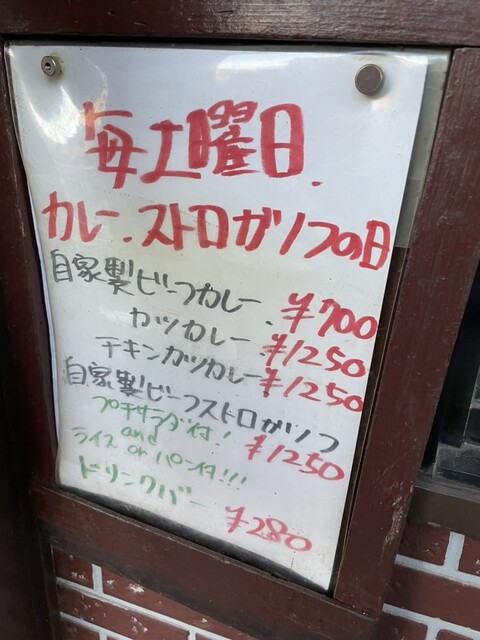 毎土曜日.
カレー.ストロガノフの日
自家製ビーフカレー.¥700
カツカレー.¥1250
チキンカツカレー¥1250
自家製ビーフストロガノフ
プチサラダ付! ¥1250
and
ライス or パン付!!!
ドリンクバー ¥280